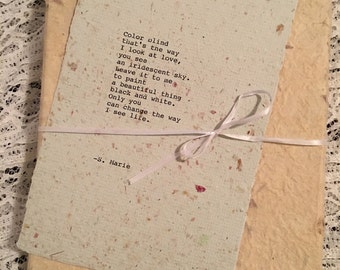 Color blind
that's the way
I look at love,
you see
an iridescent sky.
Leave it to me
to paint
a beautiful thing
black and white.
Only you
can change the way
I see life.
-S. Marie